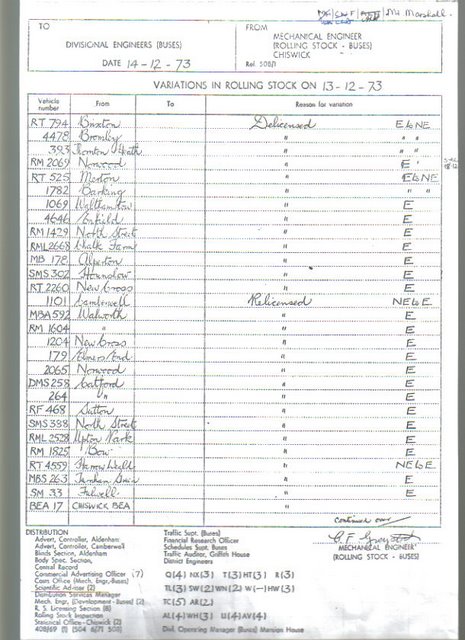 Mr Marshall.
TO
DIVISIONAL ENGINEERS (BUSES)
DATE 14-12-73
FROM
MECHANICAL ENGINEER
(ROLLING STOCK - BUSES)
CHISWICK
Ref. 508/1
VARIATIONS IN ROLLING STOCK ON 13-12-73
Vehicle number From To Reason for variation
RT 794 Brixton Delicensed E to NE
4478 Bromley " " "
393 Thornton Heath " " "
RM 2069 Norwood " E
RT 525 Merton " E to NE
1782 Barking " " "
1069 Walthamstow " E
4646 Enfield " E
RM 1429 North Street " E
RML 2668 Chalk Farm " E
MB 178 Alperton " E
SMS 302 Hounslow " E
RT 2260 New Cross " E
1101 Camberwell Relicensed NE to E
MBA 592 Walworth " E
RM 1604 " " E
1204 New Cross " E
179 Elmers End " E
2065 Norwood " E
DMS 258 Catford " E
264 " " E
RF 468 Sutton " E
SMS 338 North Street " E
RML 2528 Upton Park " E
RM 1825 Bow " E
RT 4559 Harrow Weald " NE to E
MBS 263 Turnham Green " E
SM 33 Fulwell " E
BEA 17 CHISWICK BEA "
Continued over
MECHANICAL ENGINEER
(ROLLING STOCK - BUSES)
DISTRIBUTION
Advert. Controller, Aldenham
Advert. Controller, Camberwell
Blinds Section, Aldenham
Body Spec. Section,
Central Record
Commercial Advertising Officer (7)
Costs Office (Mech. Engr.-Buses)
Scientific Adviser (2)
Distribution Services Manager
Mech. Engr. (Development - Buses) (2)
R. S. Licensing Section (8)
Rolling Stock Inspection
Statistical Office - Chiswick (2)
Traffic Supt. (Buses)
Financial Research Officer
Schedules Supt. Buses
Traffic Auditor, Griffith House
District Engineers
Q(4) NX(3) T(3) HT(3) R(3)
TL(3) SW(2) WN(2) W(-) HW(3)
TC(5) AR(2)
AL(4) WH(3) U(4) AV(4)
Divl. Operating Manager (Buses) Mansion House